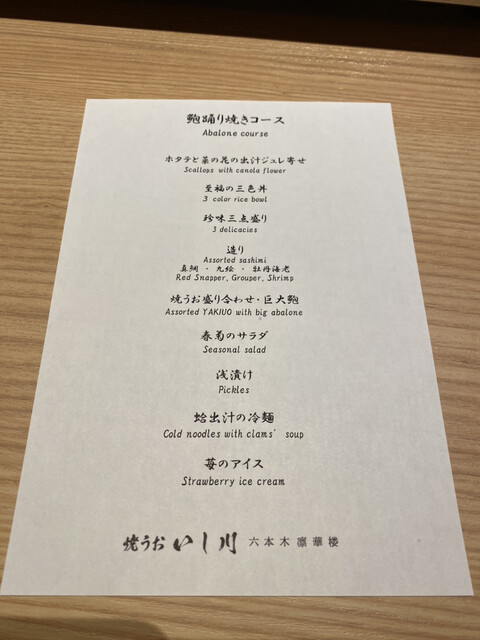 鮑踊り焼きコース
Abalone course
ホタテと菜の花の出汁ジュレ寄せ
Scallops with canola flower
至福の三色丼
3 color rice bowl
珍味三点盛り
3 delicacies
造り
Assorted sashimi
真鯛 ・ 九絵 ・ 牡丹海老
Red Snapper, Grouper, Shrimp
焼うお盛り合わせ・巨大鮑
Assorted YAKIUO with big abalone
春菊のサラダ
Seasonal salad
浅漬け
Pickles
蛤出汁の冷麺
Cold noodles with clams' soup
苺のアイス
Strawberry ice cream
焼うお いし川 六本木 凛華楼